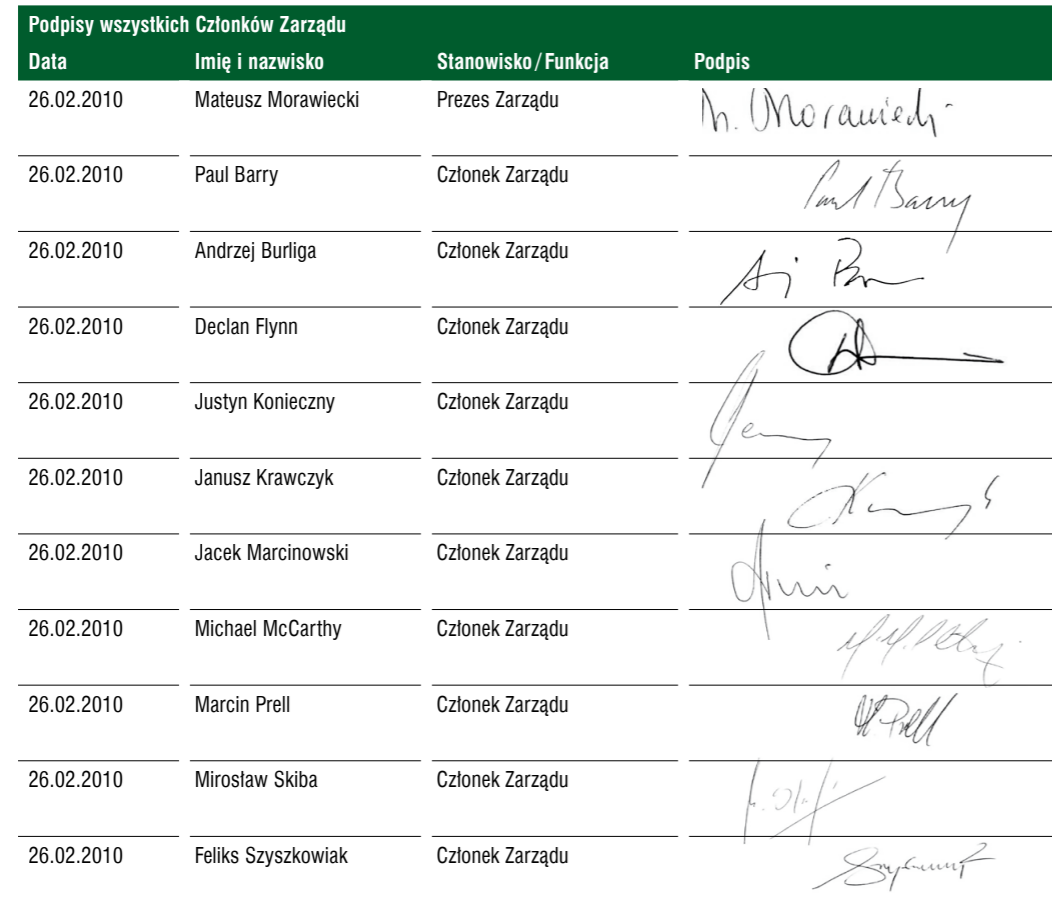 Podpisy wszystkich Członków Zarządu
Data Imię i nazwisko Stanowisko/Funkcja Podpis
26.02.2010 Mateusz Morawiecki Prezes Zarządu M. Morawiecki
26.02.2010 Paul Barry Członek Zarządu Paul Barry
26.02.2010 Andrzej Burliga Członek Zarządu
26.02.2010 Declan Flynn Członek Zarządu
26.02.2010 Justyn Konieczny Członek Zarządu
26.02.2010 Janusz Krawczyk Członek Zarządu
26.02.2010 Jacek Marcinowski Członek Zarządu
26.02.2010 Michael McCarthy Członek Zarządu
26.02.2010 Marcin Prell Członek Zarządu M. Prell
26.02.2010 Mirosław Skiba Członek Zarządu
26.02.2010 Feliks Szyszkowiak Członek Zarządu